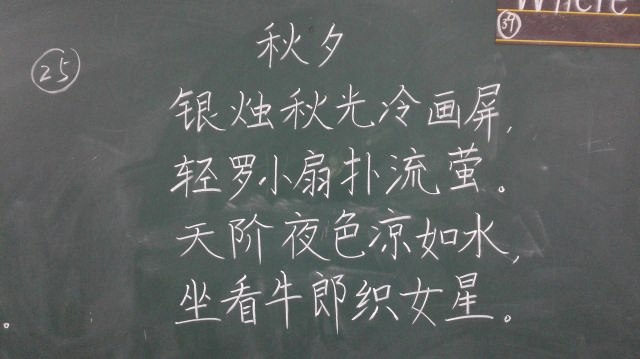 秋夕
25
银烛秋光冷画屏,
轻罗小扇扑流萤。
天阶夜色凉如水,
坐看牛郎织女星。
39
。